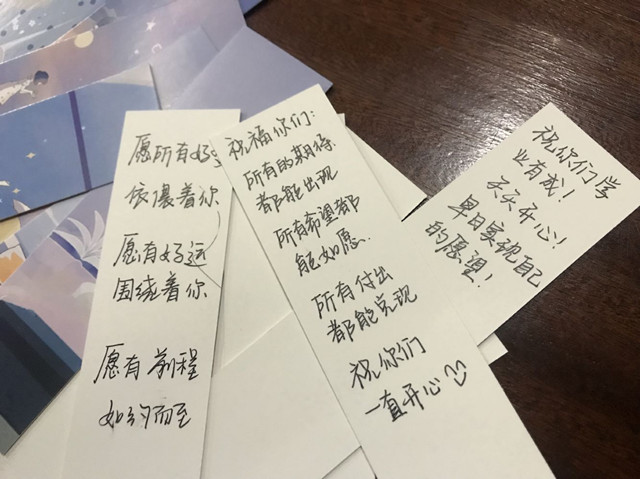 愿所有好
依偎着你
愿有好远
围绕着你
愿有前程
如约而至
祝福你们:
所有的期待
都能出现
所有希望都
能如愿.
所有付出
都能兑现
祝你们
一直开心
祝你们学
业有成!
天天开心!
早日实现自己
的愿望!